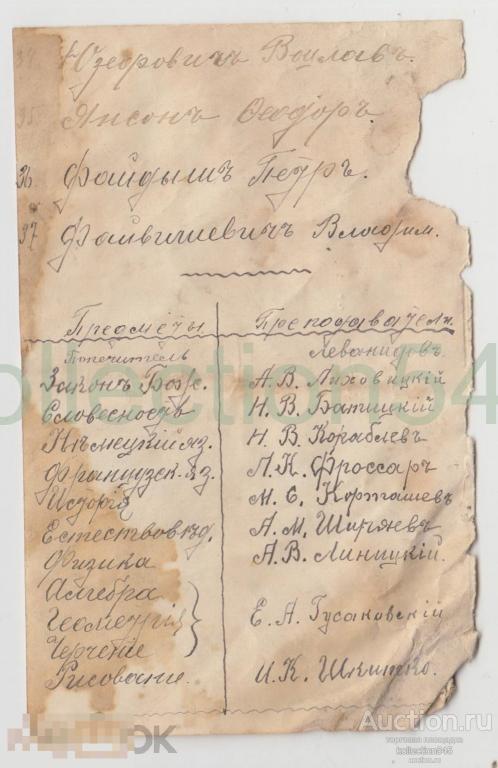 34. Юзефовичъ Воцлавъ.
35. Янсонъ Ѳеодоръ.
36. Файдышъ Петръ.
37 Файвишевичъ Владим.
Предметы Преподаватели.
Попечитель Леванидовъ.
Законъ Бож. А. В. Лиховицкій
Словесность Н. В. Батицкій
Нѣмецкій яз. Н. В. Кораблевъ
Французск. яз. Л. К. Фроссаръ
Исторія М. Е. Корташевъ
Естествовѣд. А. М. Ширяевъ
Физика А. В. Линицкій.
Алгебра
Геометрія Е. А. Гусаковскій
Черченіе
Рисованіе. И. К. Шкитко.
ollection945
Auction.ru
торговая площадка
kollection945
auction.ru